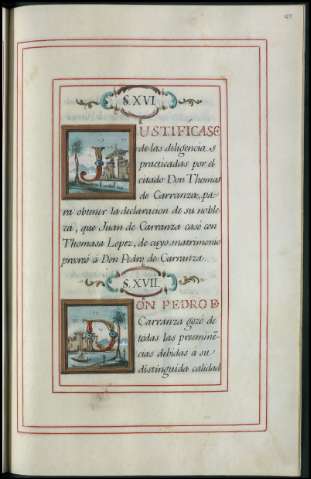 S. XVI.
JUSTIFICASE
de las diligencias
practicadas por el
citado Don Thomas
de Carranza, pa-
ra obtener la declaracion de su noble-
za, que Juan de Carranza casó con
Thomasa Lopez, de cuyo matrimonio
provno á Don Pedro de Carranza.
S. XVII.
DON PEDRO D
Carranza gozó de
todas las preeminẽ-
cias debidas a su
distinguida calidad